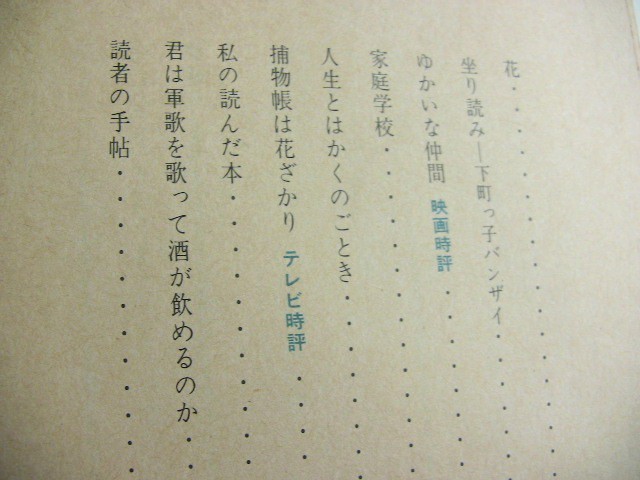 花・・・・・・・・・・・・・・
坐り読み―下町っ子バンザイ・・・・
ゆかいな仲間 映画時評・・・・・
家庭学校・・・・・・・・・・
人生とはかくのごとき・・・・・・
捕物帳は花ざかり テレビ時評・・・
私の読んだ本・・・・・・・・・
君は軍歌を歌って酒が飲めるのか・・
読者の手帖・・・・・・・・・・